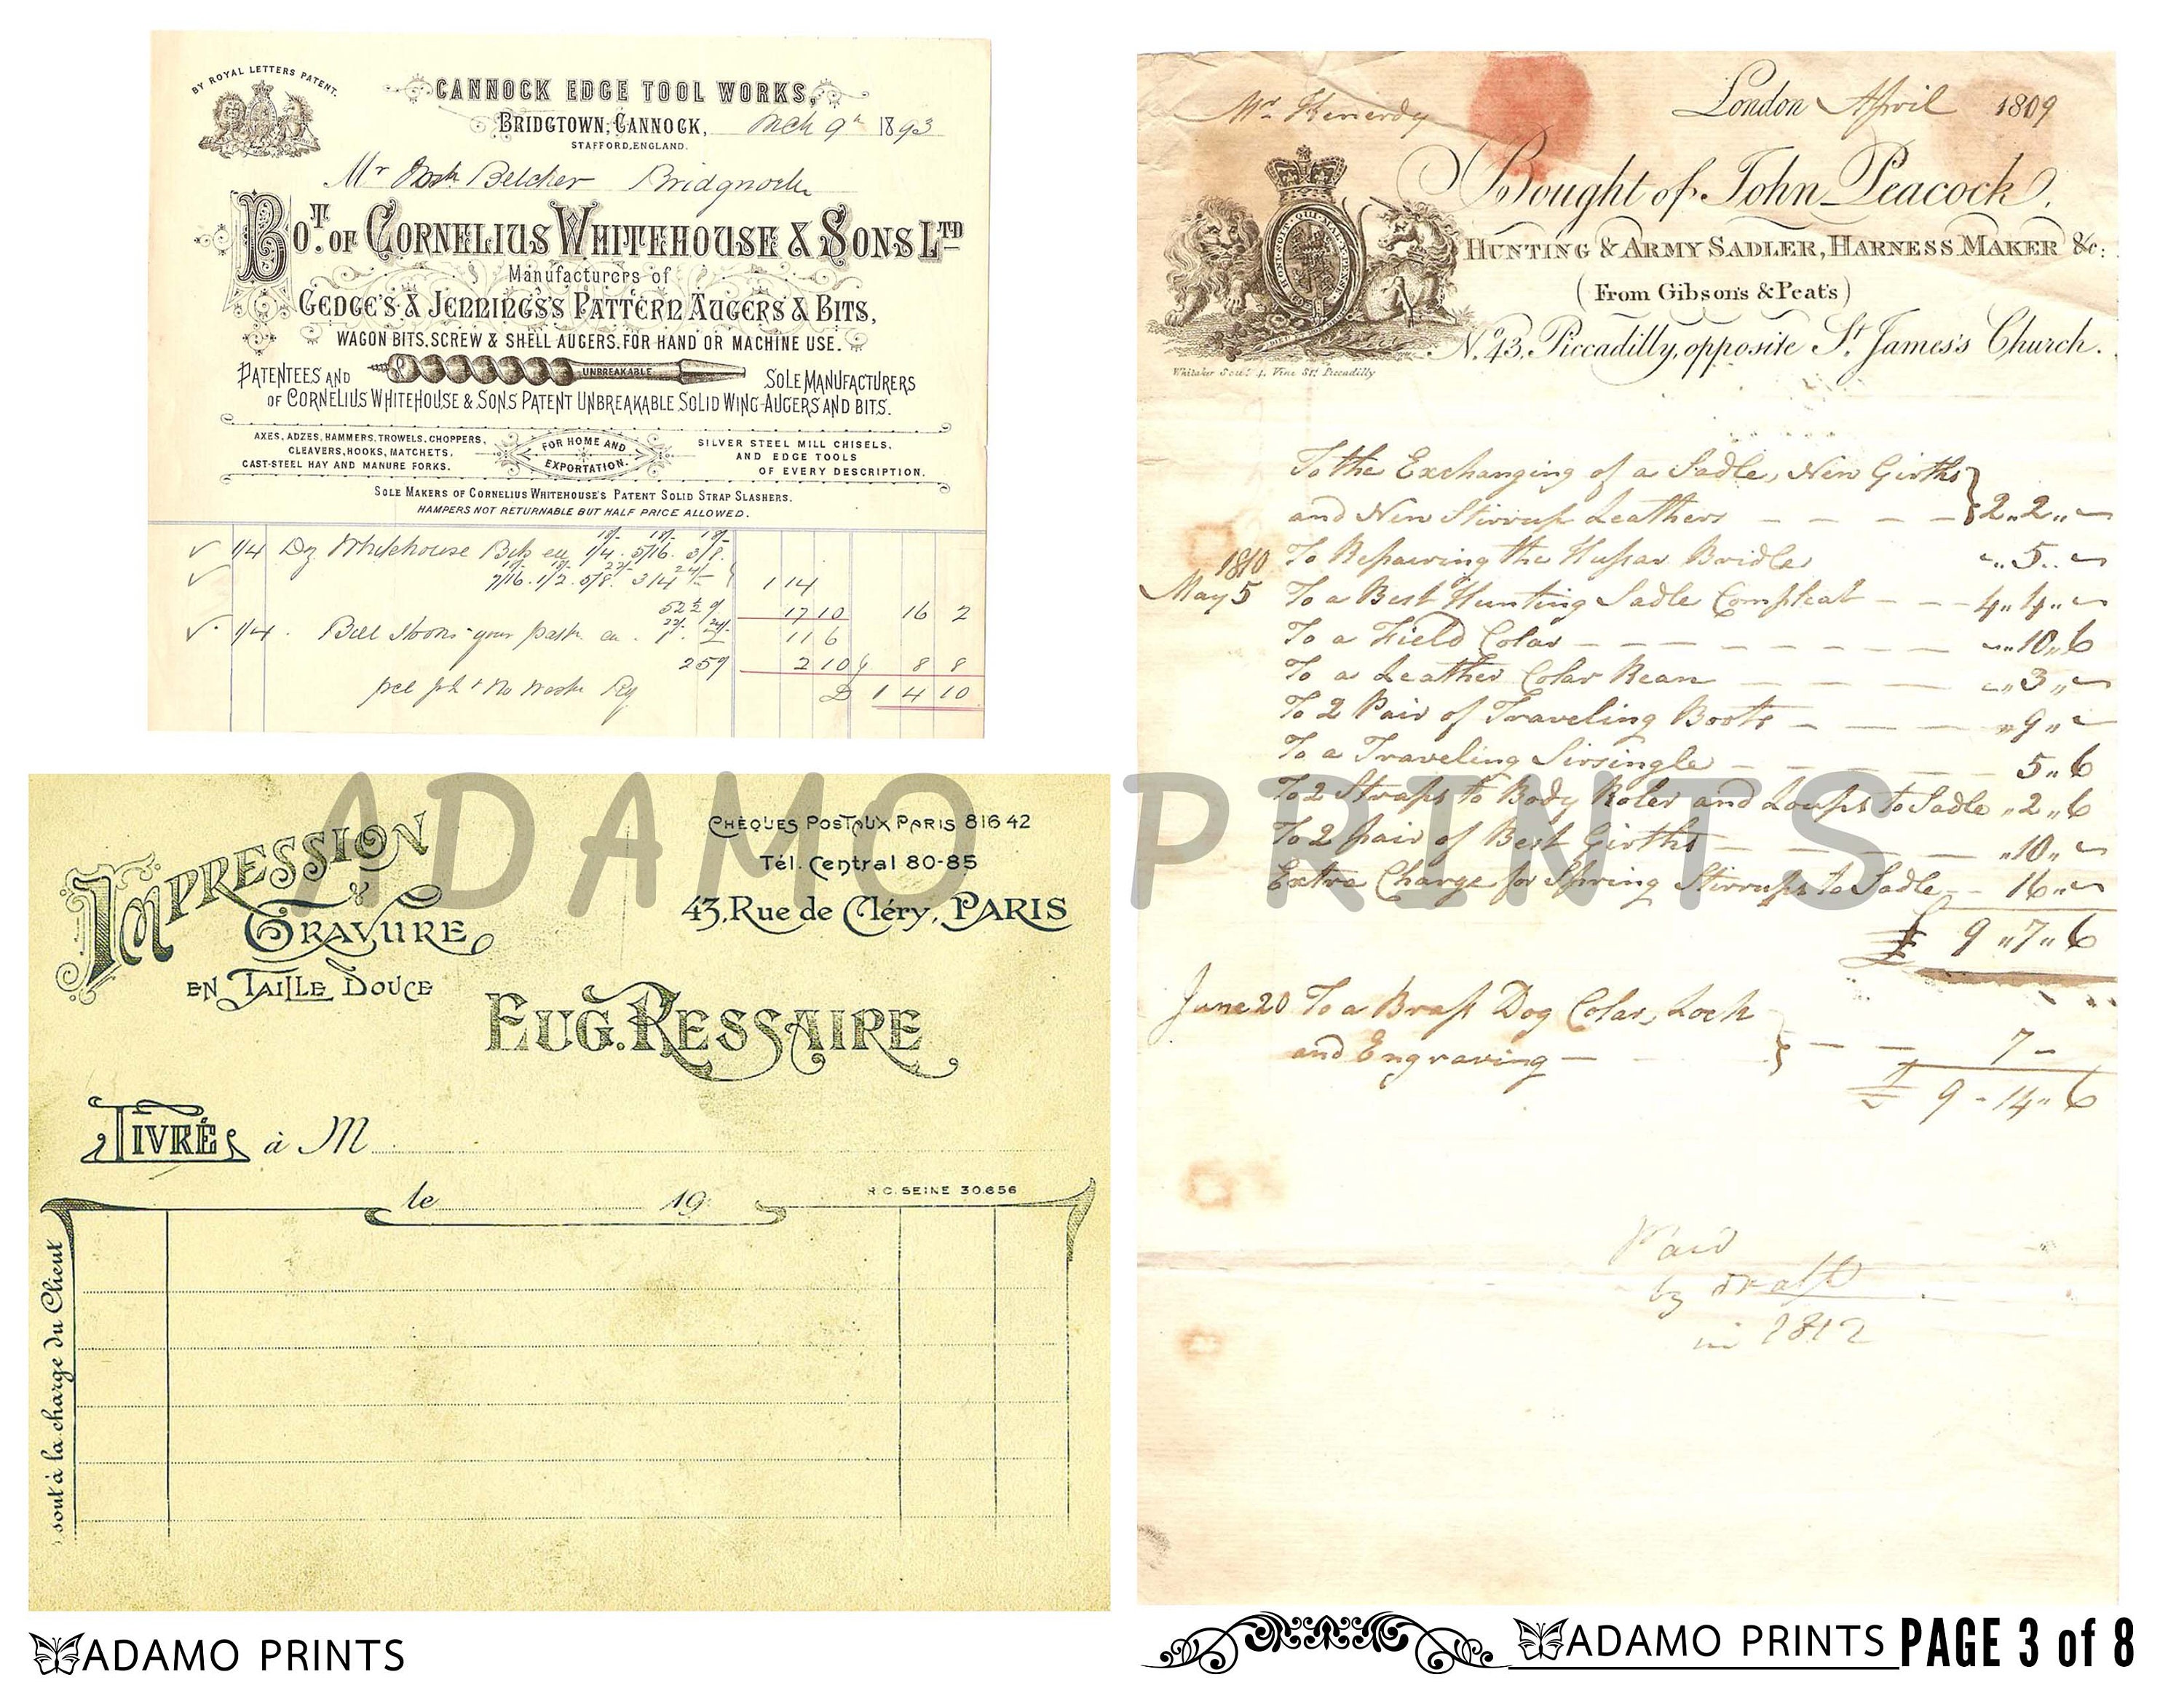 BY ROYAL LETTERS PATENT.
CANNOCK EDGE TOOL WORKS,
BRIDGTOWN, CANNOCK, Mch 9th 1893
STAFFORD, ENGLAND.
Mr Belcher Bridgnorth
BOT. OF CORNELIUS WHITEHOUSE & SONS LTD
Manufacturers of
GEDGE'S & JENNINGS'S PATTERN AUGERS & BITS,
WAGON BITS, SCREW & SHELL AUGERS, FOR HAND OR MACHINE USE.
UNBREAKABLE
PATENTEES AND SOLE MANUFACTURERS
OF CORNELIUS WHITEHOUSE & SONS PATENT UNBREAKABLE SOLID WING AUGERS AND BITS.
AXES, ADZES, HAMMERS, TROWELS, CHOPPERS,
CLEAVERS, HOOKS, MATCHETS,
CAST-STEEL HAY AND MANURE FORKS.
FOR HOME AND
EXPORTATION.
SILVER STEEL MILL CHISELS,
AND EDGE TOOLS
OF EVERY DESCRIPTION.
SOLE MAKERS OF CORNELIUS WHITEHOUSE'S PATENT SOLID STRAP SLASHERS.
HAMPERS NOT RETURNABLE BUT HALF PRICE ALLOWED.
1/4 Dz Whitehouse Bits ea 1/4 5/16 3/8
7/16 1/2 5/8 3/4 1 14
17 10 16 2
1/4 your 11 6
2 10 8 8
1 4 10
IMPRESSION
&
GRAVURE
EN TAILLE DOUCE
CHÈQUES POSTAUX PARIS 816 42
Tél. Central 80-85
43, Rue de Cléry, PARIS
EUG. RESSAIRE
LIVRÉ à M
le 19
R.C. SEINE 30.656
sont à la charge du Client
Mr Kenerdy London April 1809
Bought of John Peacock,
HUNTING & ARMY SADLER, HARNESS MAKER &c:
(From Gibson's & Peat's)
No. 43, Piccadilly, opposite St. James's Church.
HONI SOIT QUI MAL Y PENSE
Whitaker Scul. 4, Vine Str. Piccadilly
To the Exchanging of a Sadle, New Girths
and New Stirrup Leathers 2 „ 2 „ -
1810 To Repairing the Hussar Bridle „ 5 „ -
May 5 To a Best Hunting Sadle Compleat 4 „ 4 „ -
To a Field Colar „ 10 „ 6
To a Leather Colar Rean „ 3 „ -
To 2 Pair of Traveling Boots „ 9 „ -
To a Traveling Sirsingle 5 „ 6
To 2 Straps to Body Roler and Loups to Sadle „ 2 „ 6
To 2 pair of Best Girths „ 10 „ -
Extra Charge for Spring Stirrups to Sadle 16 „ -
£ 9 „ 7 „ 6
June 20 To a Brass Dog Colar, Lock
and Engraving 7 -
£ 9 - 14 „ 6
Paid
by draft
in 1812
ADAMO PRINTS
ADAMO PRINTS
ADAMO PRINTS PAGE 3 of 8